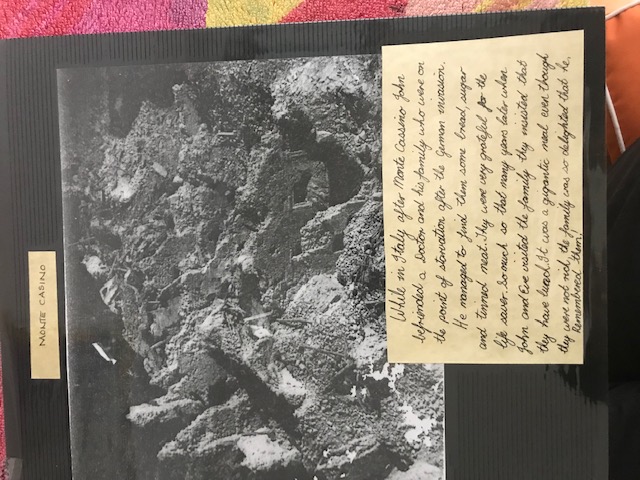 MONTE CASINO
While in Italy after Monte Cassino John
befriended a Doctor and his family who were on
the point of starvation after the German invasion.
He managed to find them some bread, sugar
and tinned meat. They were very grateful for the
life saver. So much so that many years later when
John and Eve visited the family they insisted that
they have lunch. It was a gigantic meal even though
they were not rich, the family was so delighted that he
Remembered them!